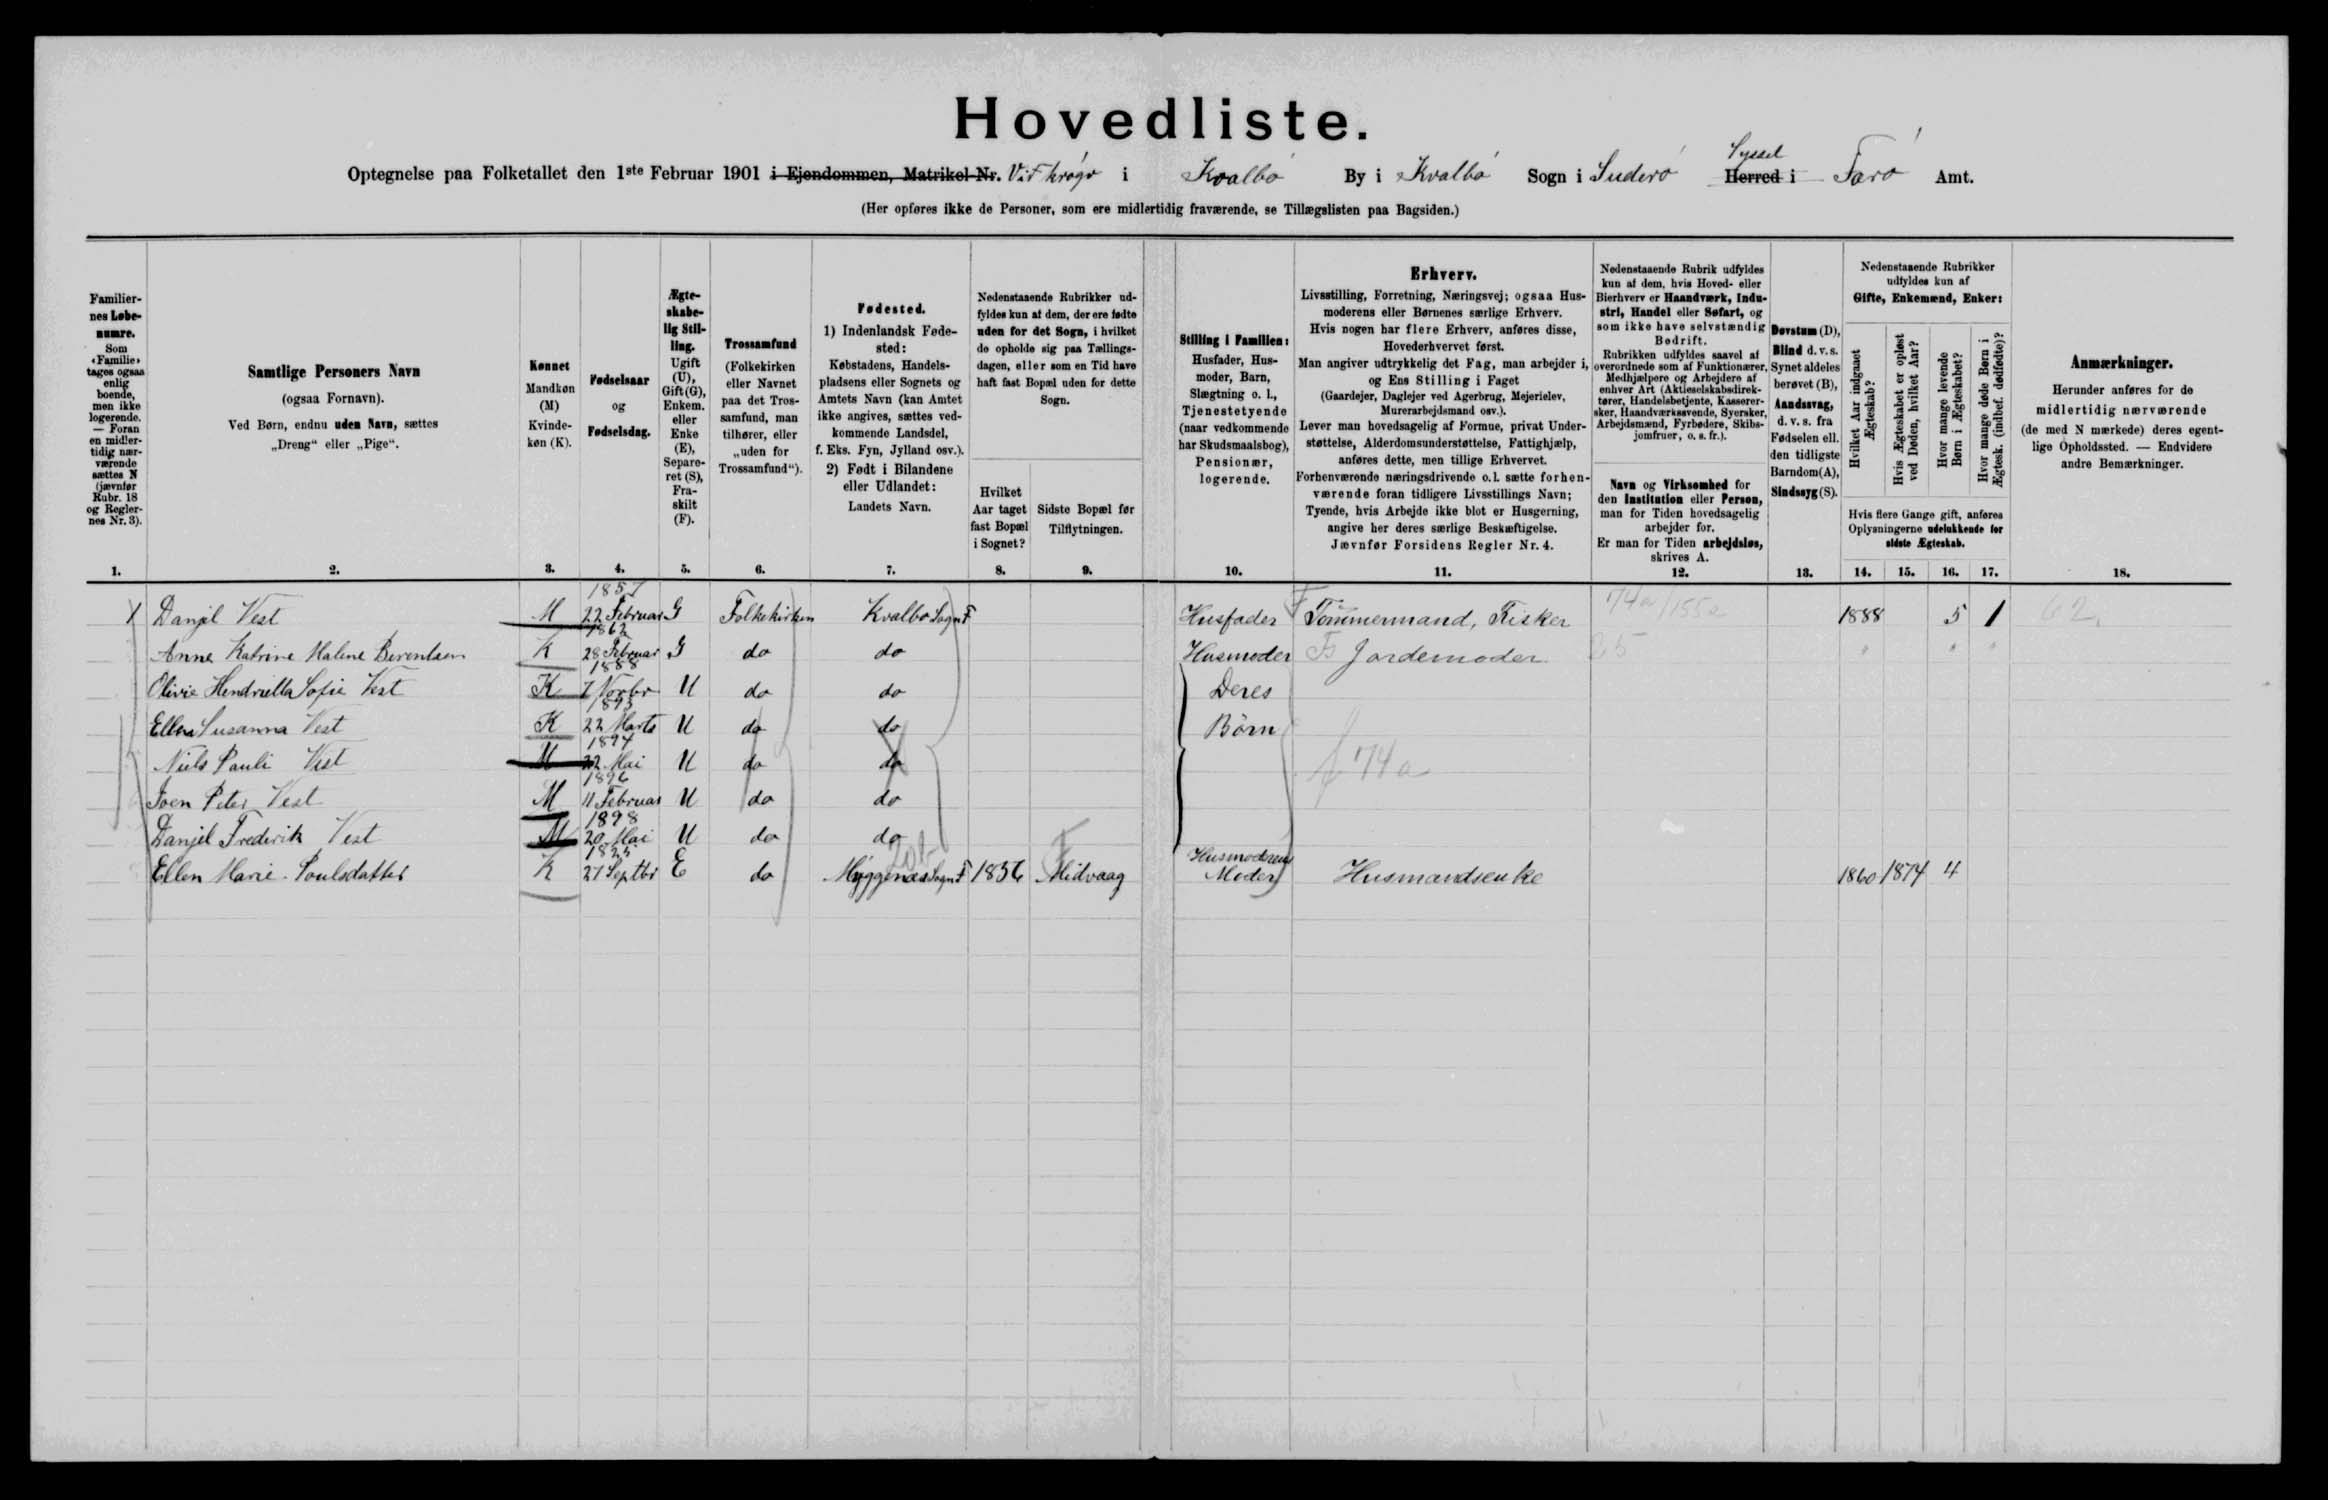 Hovedliste.
Optegnelse paa Folketallet den 1ste Februar 1901 i Ejendommen, Matrikel-Nr. Við Krógv i Kvalbø By i Kvalbø Sogn i Suderø Syssel Herred i Færø Amt.
(Her opføres ikke de Personer, som ere midlertidig fraværende, se Tillægslisten paa Bagsiden.)
Familiernes Løbenumre.
Som «Familie» tages ogsaa enlig boende, men ikke logerende. — Foran en midlertidig nærværende sættes N (jævnfør Rubr. 18 og Reglernes Nr. 3).
Samtlige Personers Navn
(ogsaa Fornavn).
Ved Børn, endnu uden Navn, sættes
„Dreng“ eller „Pige“.
Kønnet
Mandkøn (M) Kvindekøn (K).
Fødselsaar
og
Fødselsdag.
Ægteskabelig Stilling.
Ugift (U), Gift (G), Enkem. eller Enke (E), Separeret (S), Fraskilt (F).
Trossamfund
(Folkekirken eller Navnet paa det Trossamfund, man tilhører, eller „uden for Trossamfund“).
Fødested.
1) Indenlandsk Fødested:
Købstadens, Handelspladsens eller Sognets og Amtets Navn (kan Amtet ikke angives, sættes vedkommende Landsdel, f. Eks. Fyn, Jylland osv.).
2) Født i Bilandene eller Udlandet:
Landets Navn.
Nedenstaaende Rubrikker udfyldes kun af dem, der ere fødte uden for det Sogn, i hvilket de opholde sig paa Tællingsdagen, eller som en Tid have haft fast Bopæl uden for dette Sogn.
Hvilket Aar taget fast Bopæl i Sognet?
Sidste Bopæl før Tilflytningen.
Stilling i Familien:
Husfader, Husmoder, Barn, Slægtning o. l., Tjenestetyende (naar vedkommende har Skudsmaalsbog), Pensionær, logerende.
Erhverv.
Livsstilling, Forretning, Næringsvej; ogsaa Husmoderens eller Børnenes særlige Erhverv.
Hvis nogen har flere Erhverv, anføres disse, Hovederhvervet først.
Man angiver udtrykkelig det Fag, man arbejder i, og Ens Stilling i Faget
(Gaardejer, Daglejer ved Agerbrug, Mejerielev, Murerarbejdsmand osv.).
Lever man hovedsagelig af Formue, privat Understøttelse, Alderdomsunderstøttelse, Fattighjælp, anføres dette, men tillige Erhvervet.
Forhenværende næringsdrivende o. l. sætte forhenværende foran tidligere Livsstillings Navn; Tyende, hvis Arbejde ikke blot er Husgerning, angive her deres særlige Beskæftigelse.
Jævnfør Forsidens Regler Nr. 4.
Nedenstaaende Rubrik udfyldes kun af dem, hvis Hoved- eller Bierhverv er Haandværk, Industri, Handel eller Søfart, og som ikke have selvstændig Bedrift.
Rubrikken udfyldes saavel af overordnede som af Funktionærer, Medhjælpere og Arbejdere af enhver Art (Aktieselskabsdirektører, Handelsbetjente, Kasserersker, Haandværkssvende, Syersker, Arbejdsmænd, Fyrbødere, Skibsjomfruer, o. s. fr.).
Navn og Virksomhed for den Institution eller Person, man for Tiden hovedsagelig arbejder for.
Er man for Tiden arbejdsløs, skrives A.
Døvstum (D), Blind d. v. s. Synet aldeles berøvet (B), Aandssvag, d. v. s. fra Fødselen ell. den tidligste Barndom (A), Sindssyg (S).
Nedenstaaende Rubrikker udfyldes kun af
Gifte, Enkemænd, Enker:
Hvilket Aar indgaaet Ægteskab?
Hvis Ægteskabet er opløst ved Døden, hvilket Aar?
Hvor mange levende Børn i Ægteskabet?
Hvor mange døde Børn i Ægtesk. (indbef. dødfødte)?
Hvis flere Gange gift, anføres Oplysningerne udelukkende for sidste Ægteskab.
Anmærkninger.
Herunder anføres for de midlertidig nærværende (de med N mærkede) deres egentlige Opholdssted. — Endvidere andre Bemærkninger.
1. 2. 3. 4. 5. 6. 7. 8. 9. 10. 11. 12. 13. 14. 15. 16. 17. 18.
1 Danjel Vest M 1857 22 Februar G Folkekirken Kvalbø Sogn F Husfader F Tömmermand, Fisker 74a/155a 1888 5 1 62.
Anne Katrine Malene Berentsen K 1862 28 Februar G do do Husmoder Jordemoder 25 " " "
Olivie Hendrietta Sofie Vest K 1888 7 Novbr U do do Deres
Ellen Susanna Vest K 1893 22 Marts U do do Børn
Niels Pauli Vest M 1894 22 Mai U do do f 74a
Joen Peter Vest M 1896 11 Februar U do do
Danjel Frederik Vest M 1898 20 Mai U do do
Ellen Marie Poulsdatter K 27 Septbr E do Myggenæs Sogn F 1856 Midvaag Husmoderens Moder Husmandsenke 1860 1874 4